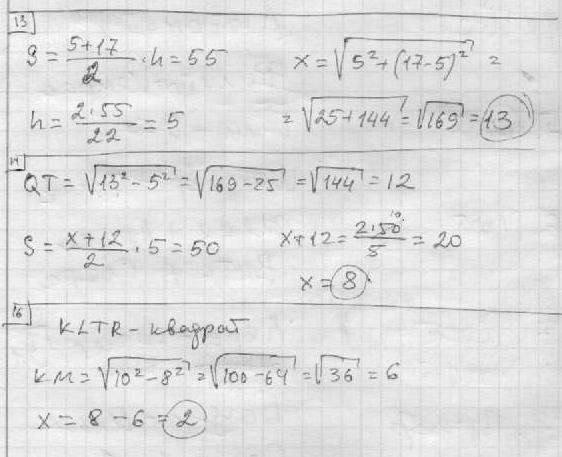 13
S = (5+17)/2 · h = 55
x = √(5² + (17-5)²) =
h = (2·55)/22 = 5
= √(25+144) = √169 = 13
14
QT = √(13² - 5²) = √(169-25) = √144 = 12
S = (x+12)/2 · 5 = 50
x+12 = (2·50)/5 = 20
10
x = 8
16
KLTR - квадрат
KM = √(10² - 8²) = √(100-64) = √36 = 6
x = 8 - 6 = 2